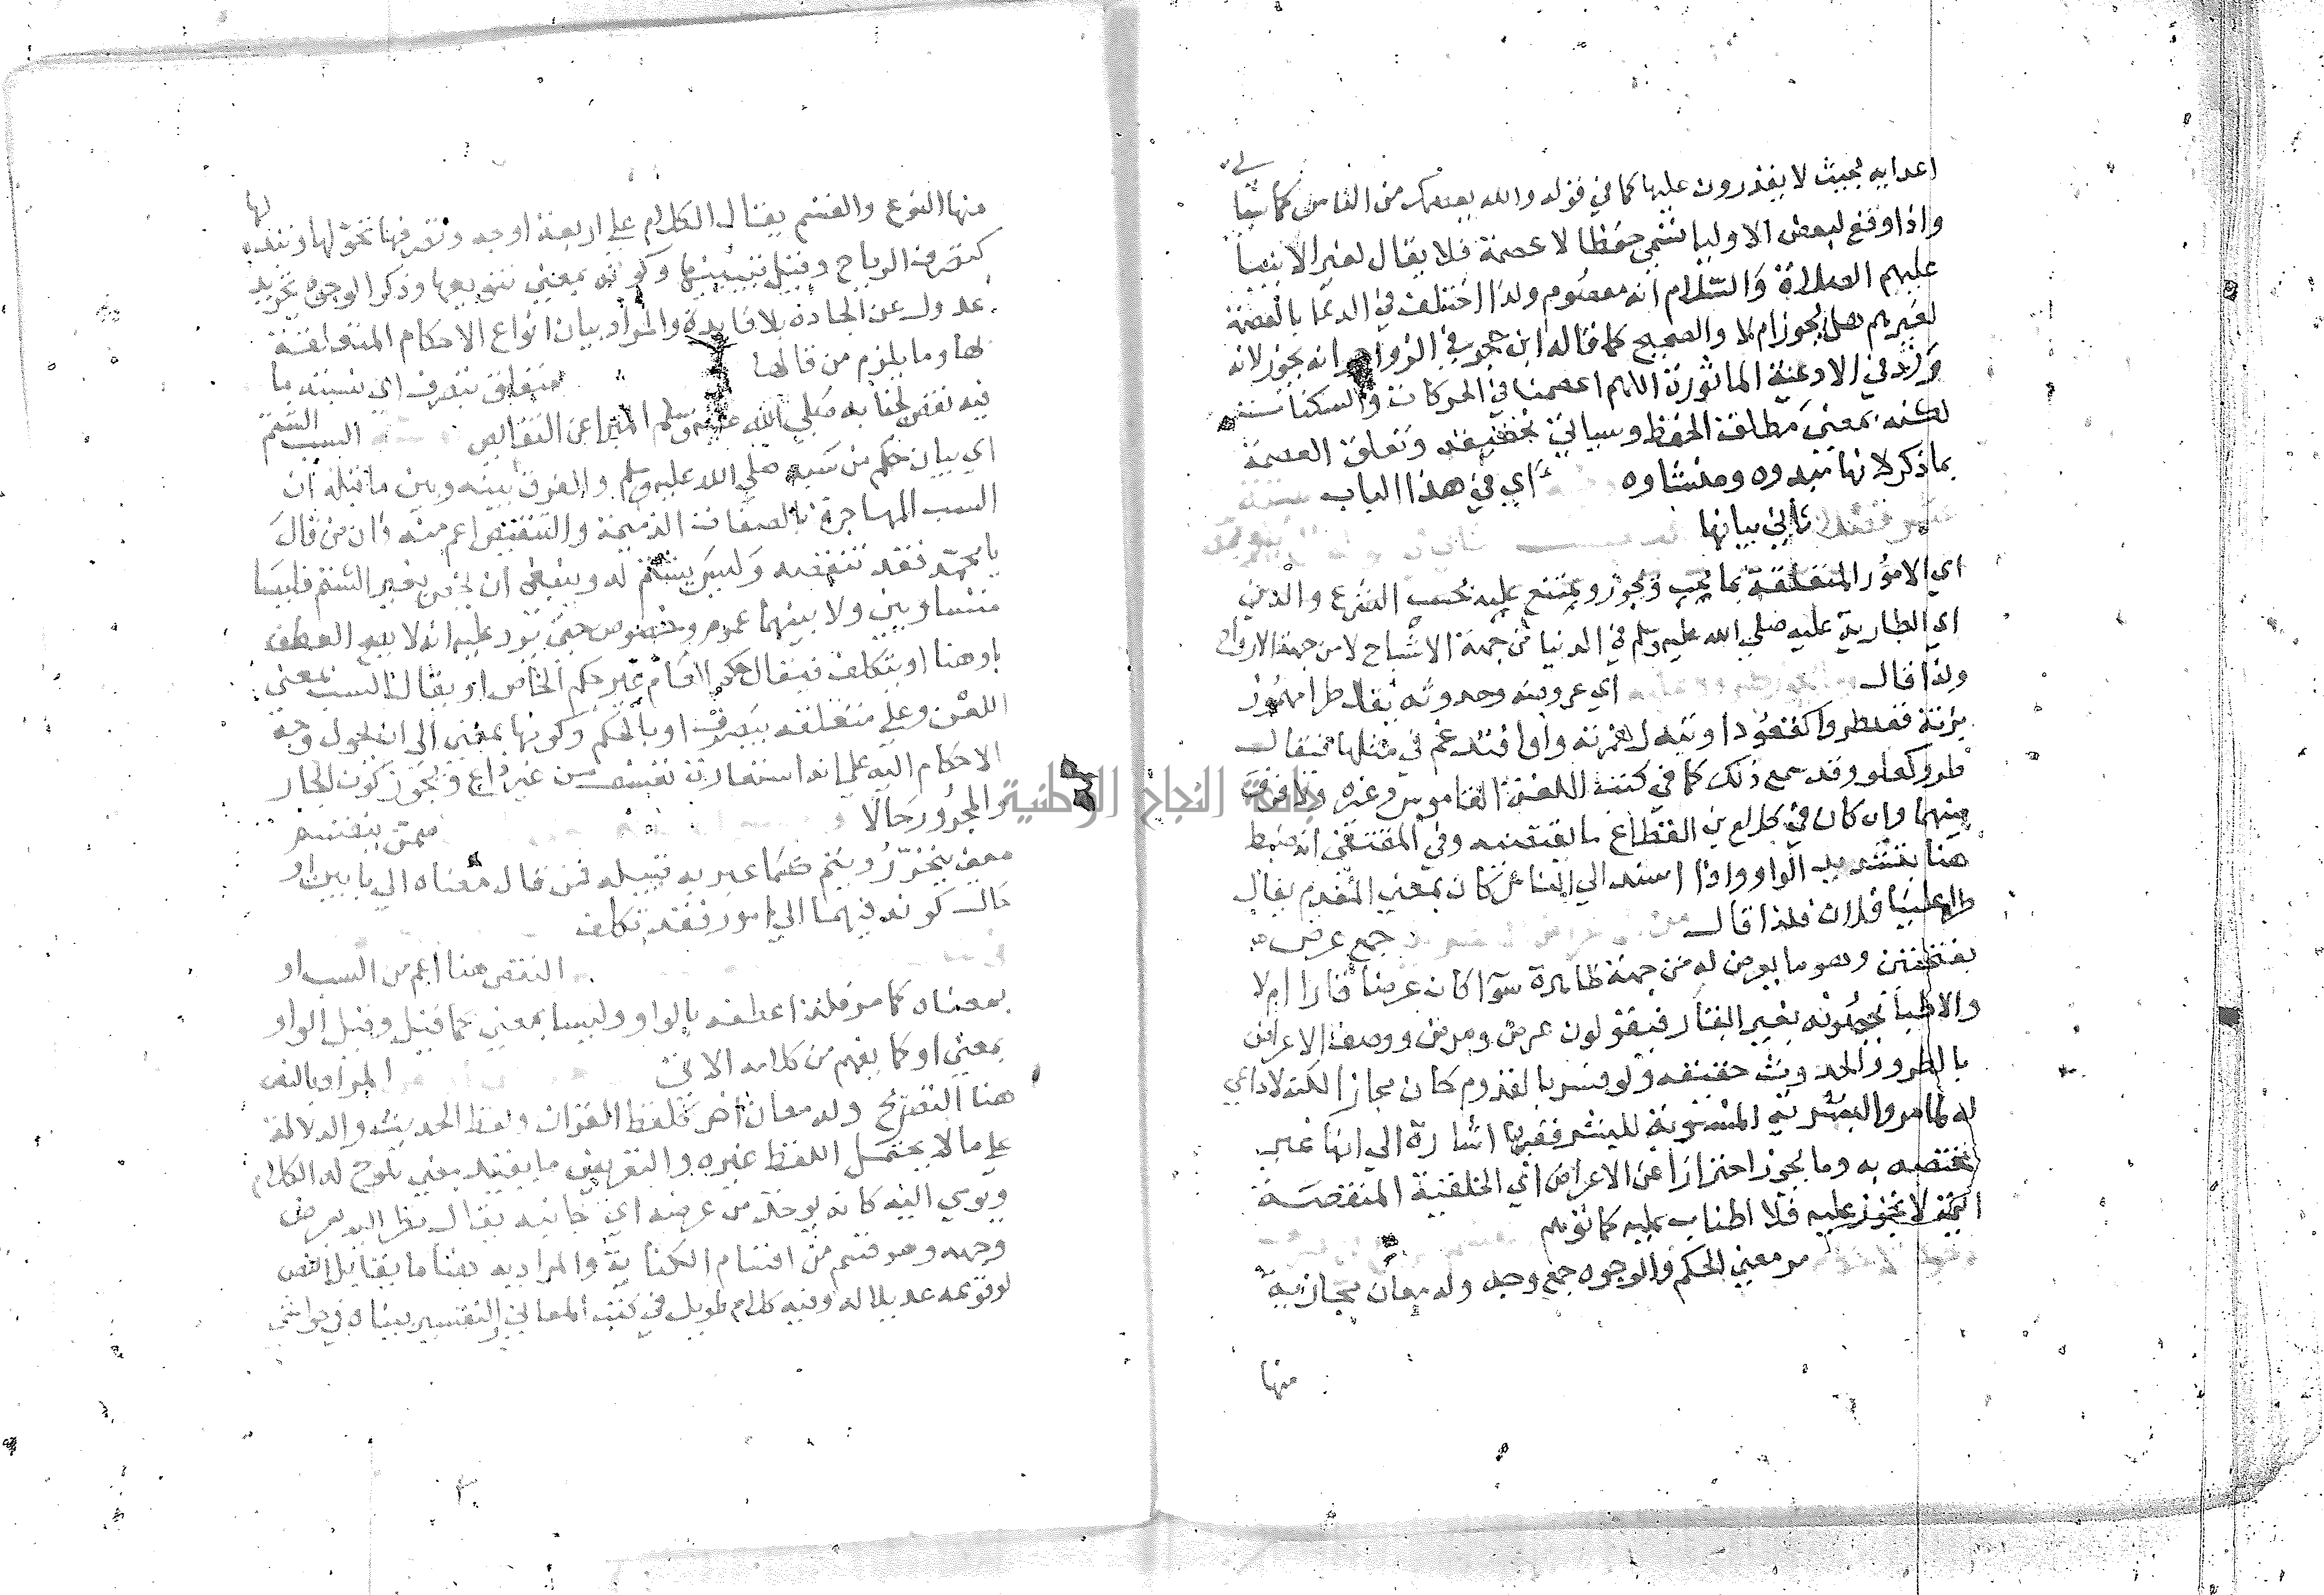 اعدايه بحيث لا يقدرون عليها كما في قوله والله يعصمك من الناس كما سيا تي
واذا وقع لبعض الاوليا تسمي حفظا لا عصمة فلا يقال لغير الانبيا
عليهم الصلاة والسلام انه معصوم ولذا اختلف في الدعا بالعصمة
لغيرهم هل يجوز ام لا والصحيح كما قاله ابن حجر في الزواجر انه يجوز لانه
ورد في الادعية الماثورة اللهم اعصمنا في الحركات والسكنات
لكنه بمعني مطلق الحفظ وسياتي تحقيقه وتعلق العصمة
بما ذكر لانها مبدوه ومنشاوه اي في هذا الباب
تاتي بيانها
اي الامور المتعلقة بما يجب ويجوز ويمتنع عليه بحسب الشرع والذي
اي الطارية عليه صلي الله عليه وسلم في الدنيا من جهة الاشباح لا من جهة الارواح
ولذا قال اي عروضه وحدوثه يقال طرا مهموز
بزنة فقعد طروا كقعود او تبدل همزته واوا فتدغم في مثلها فيقال
طرو كعلو وقد سمع ذلك كما في كتب اللغة القاموس وغيره ولا فرق
بينهما وان كان في كلام ابن القطاع ما يقتضيه وفي المقتفي انه ضبط
هنا بتشديد الواو واذا اسند الي الفاعل كان بمعني القدوم يقال
طرا علينا فلان فلذا قال جمع عرض
بفتحتين وهو ما يعرض له من جهة ظاهرة سوا كان عرضا قارا ام لا
والاطبا يخصونه بغير القار فيقولون عرض ومرض ووصف الاعراض
بالطرو والحدوث حقيقه ولو فسر بالقدوم كان مجازا لكنه لا داعي
له لما مر والبشرية المنسوبة للبشر ففيها اشارة الي انها غير
مختصه به وما يجوز احترازا عن الاعراض اي الخلقية المنقصة
التي لا تجوز عليه فلا اطناب عليه كما توهم
مر معني الحكم والوجوه جمع وجه وله معان مجازية
منها
منها النوع والقسم يقال الكلام علي اربعة اوجه وتصرفها تحولها وتنقلها
كتصرف الرياح وقيل تبيينها وكونه بمعني تنويعها وذكر الوجوه تجريد
عدول عن الجادة بلا فايدة والمراد بيان انواع الاحكام المتعلقة
لها وما يلزم من قالها متعلق بتصرف اي نسبته ما
فيه نقص لجنابه صلي الله عليه وسلم المبرا عن النقايص السب الشتم
اي بيان حكم من سبه صلي الله عليه وسلم والفرق بينه وبين ما قبله ان
السب المهاجرة بالصفات الذميمة والتنقيص اعم منه فان من قال
يا محمد فقد تنقصه وليس بشتم له وينبغي ان يخص بغير الشتم فليسا
متساويين ولا بينهما عموم وخصوص حتي يرد عليه انه لا يصح العطف
باو هنا او يتكلف فيقال حكم العام غير حكم الخاص او يقال السب بمعني
اللعن وعلي متعلقه بتصرف او بالحكم وكونها بمعني الي اي تحول وجه
الاحكام اليه علي انه استعارة تعسف من غير داع ويجوز كون الجار
والمجرور حالا ممن ينقسم
معين يتحرر ويتم كما عبر به قبيله فمن قال معناه الي بابين او
حال كونه فيهما الي امور فقد تكلف
النقص هنا اعم من السب او
بمعناه كما مر فلذا عطفه بالواو وليسا بمعني كما قيل وقيل الواو
بمعني او كما يفهم من كلامه الاتي المراد بالنص
هنا التصريح وله معان اخر كلفظ القران ولفظ الحديث والدلالة
علي ما لا يحتمل اللفظ غيره والتعريض ما يفيد معني يلوح له الكلام
ويومي اليه كانه يوخذ من عرضه اي جانبه يقال نظر اليه بعرض
وجهه وهو قسم من اقسام الكناية والمراد به هنا ما يقابل النص
لوقوعه عديلا له وفيه كلام طويل في كتب المعاني والتفسير بيناه في حواشي
جامعة النجاح الوطنية